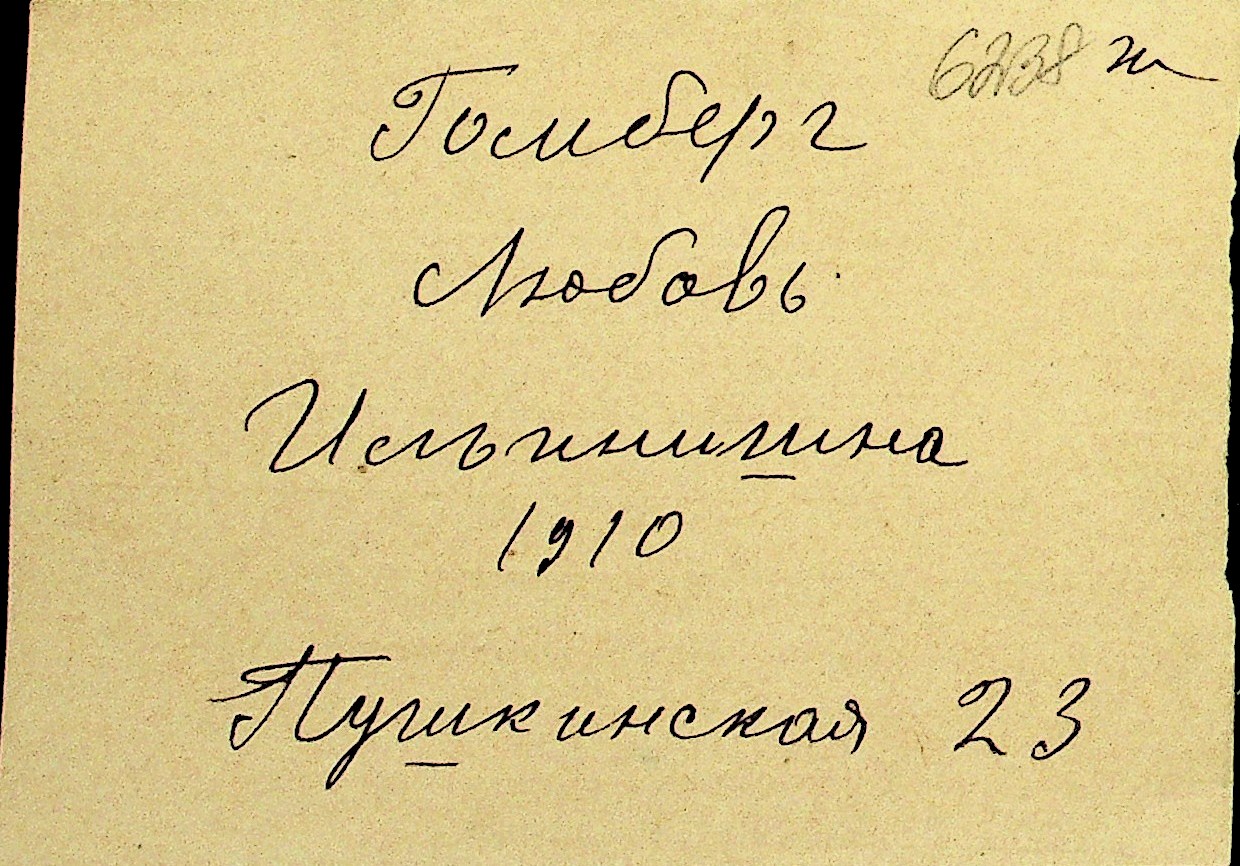 6238 ж
Гомберг
Любовь
Ильинишна
1910
Пушкинская 23